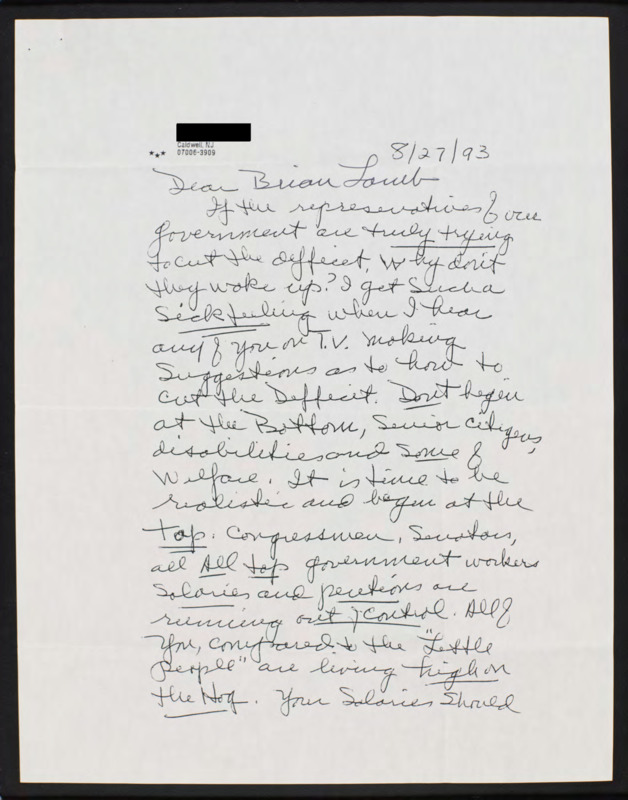 Caldwell, NJ
07006-3909
8/27/93
Dear Brian Lamb
If the represenatives of our
government are truly trying
to cut the defficet, why don't
they wake up? I get such a
sick feeling when I hear
any of you on T.V. making
suggestions as to how to
cut the Defficit. Don't begin
at the Bottom, Senior Citizens,
disabilities and some of
Welfare. It is time to be
realistic and begin at the
top. Congressmen, Senators,
all All top government workers
Salaries and pentions are
running out of control. All of
you, compared to the "Little
people" are living high on
the Hog. Your Salaries should